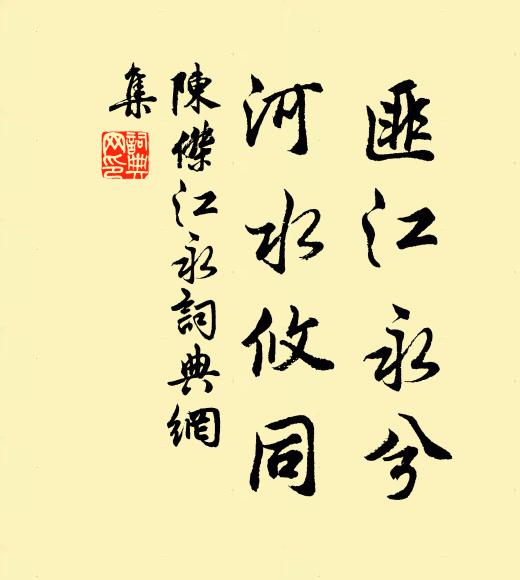 匪江永兮
河水攸同
陳傑江永詞典網
集
詞典
网印